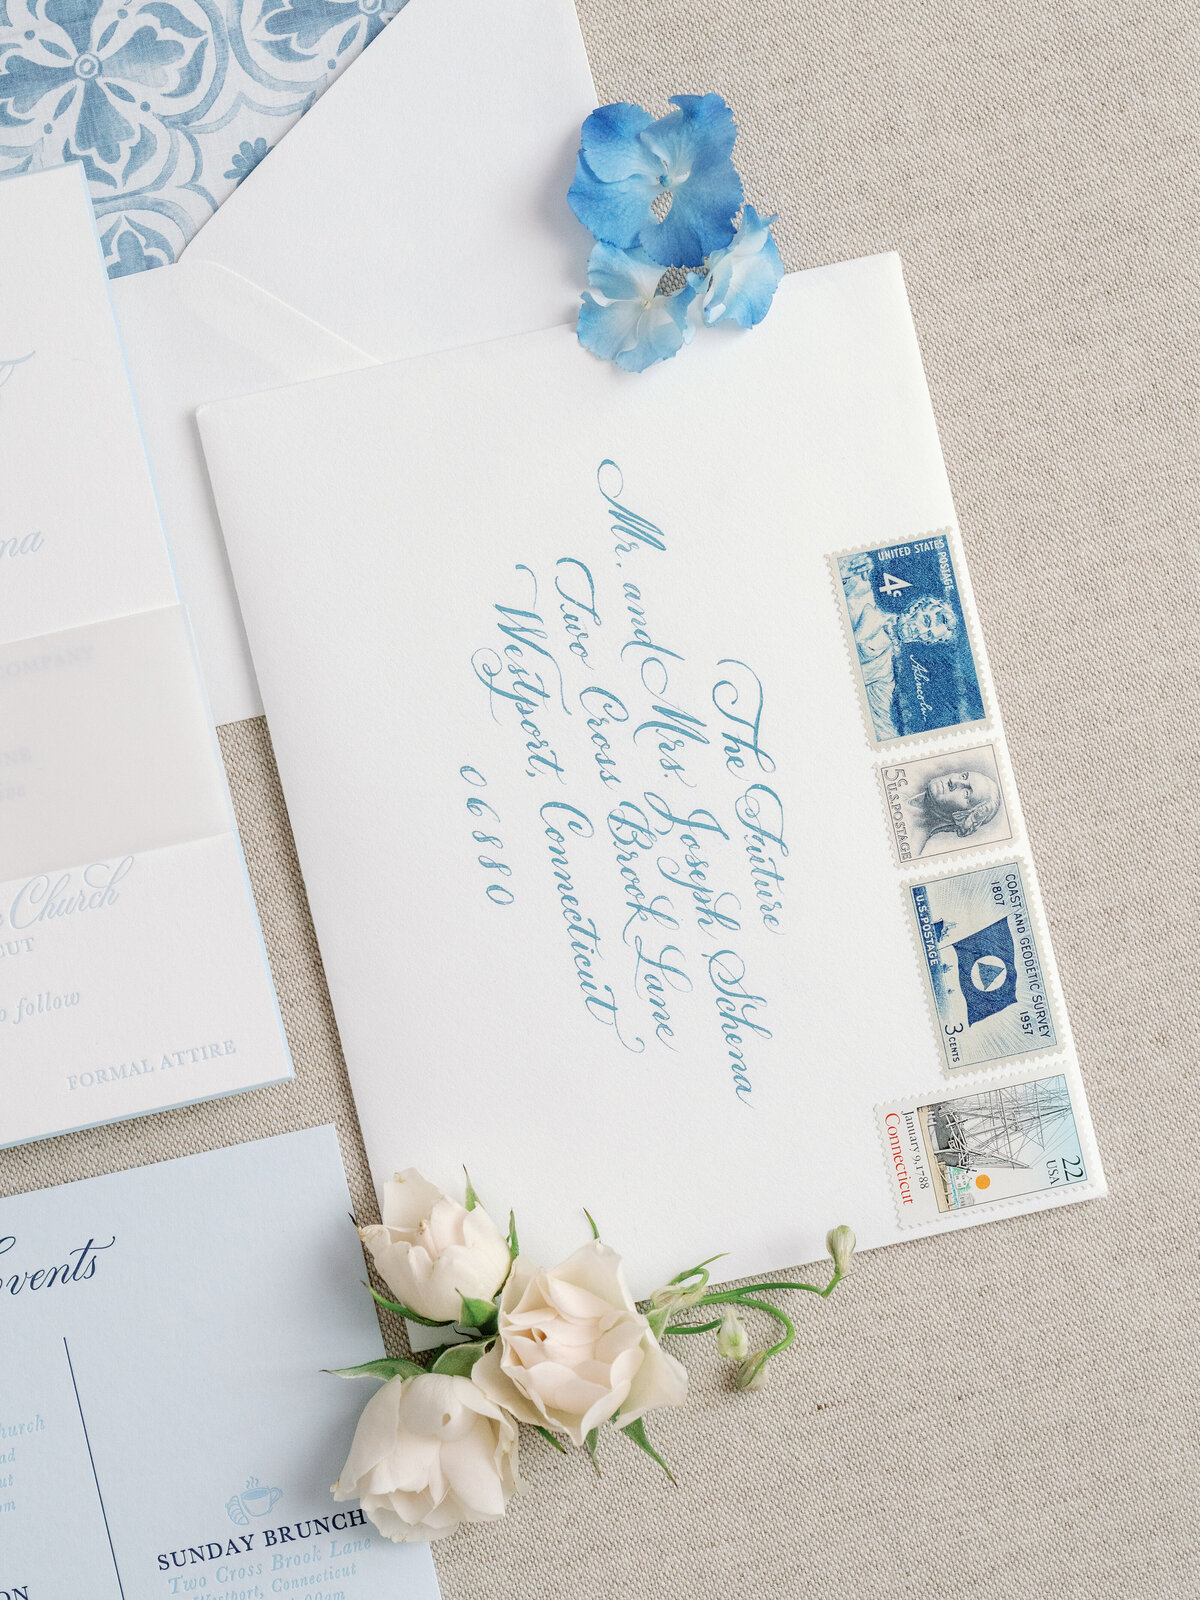 The Future
Mr. and Mrs. Joseph Schena
Two Cross Brook Lane
Westport, Connecticut
06880
UNITED STATES POSTAGE
4c
A. Lincoln
5c
U.S. POSTAGE
COAST AND GEODETIC SURVEY
1807 1957
U.S. POSTAGE
3 CENTS
22
USA
January 9, 1788
Connecticut
COMPANY
Church
to follow
FORMAL ATTIRE
Events
SUNDAY BRUNCH
Two Cross Brook Lane
Westport, Connecticut